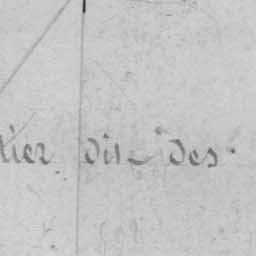 tier dit des